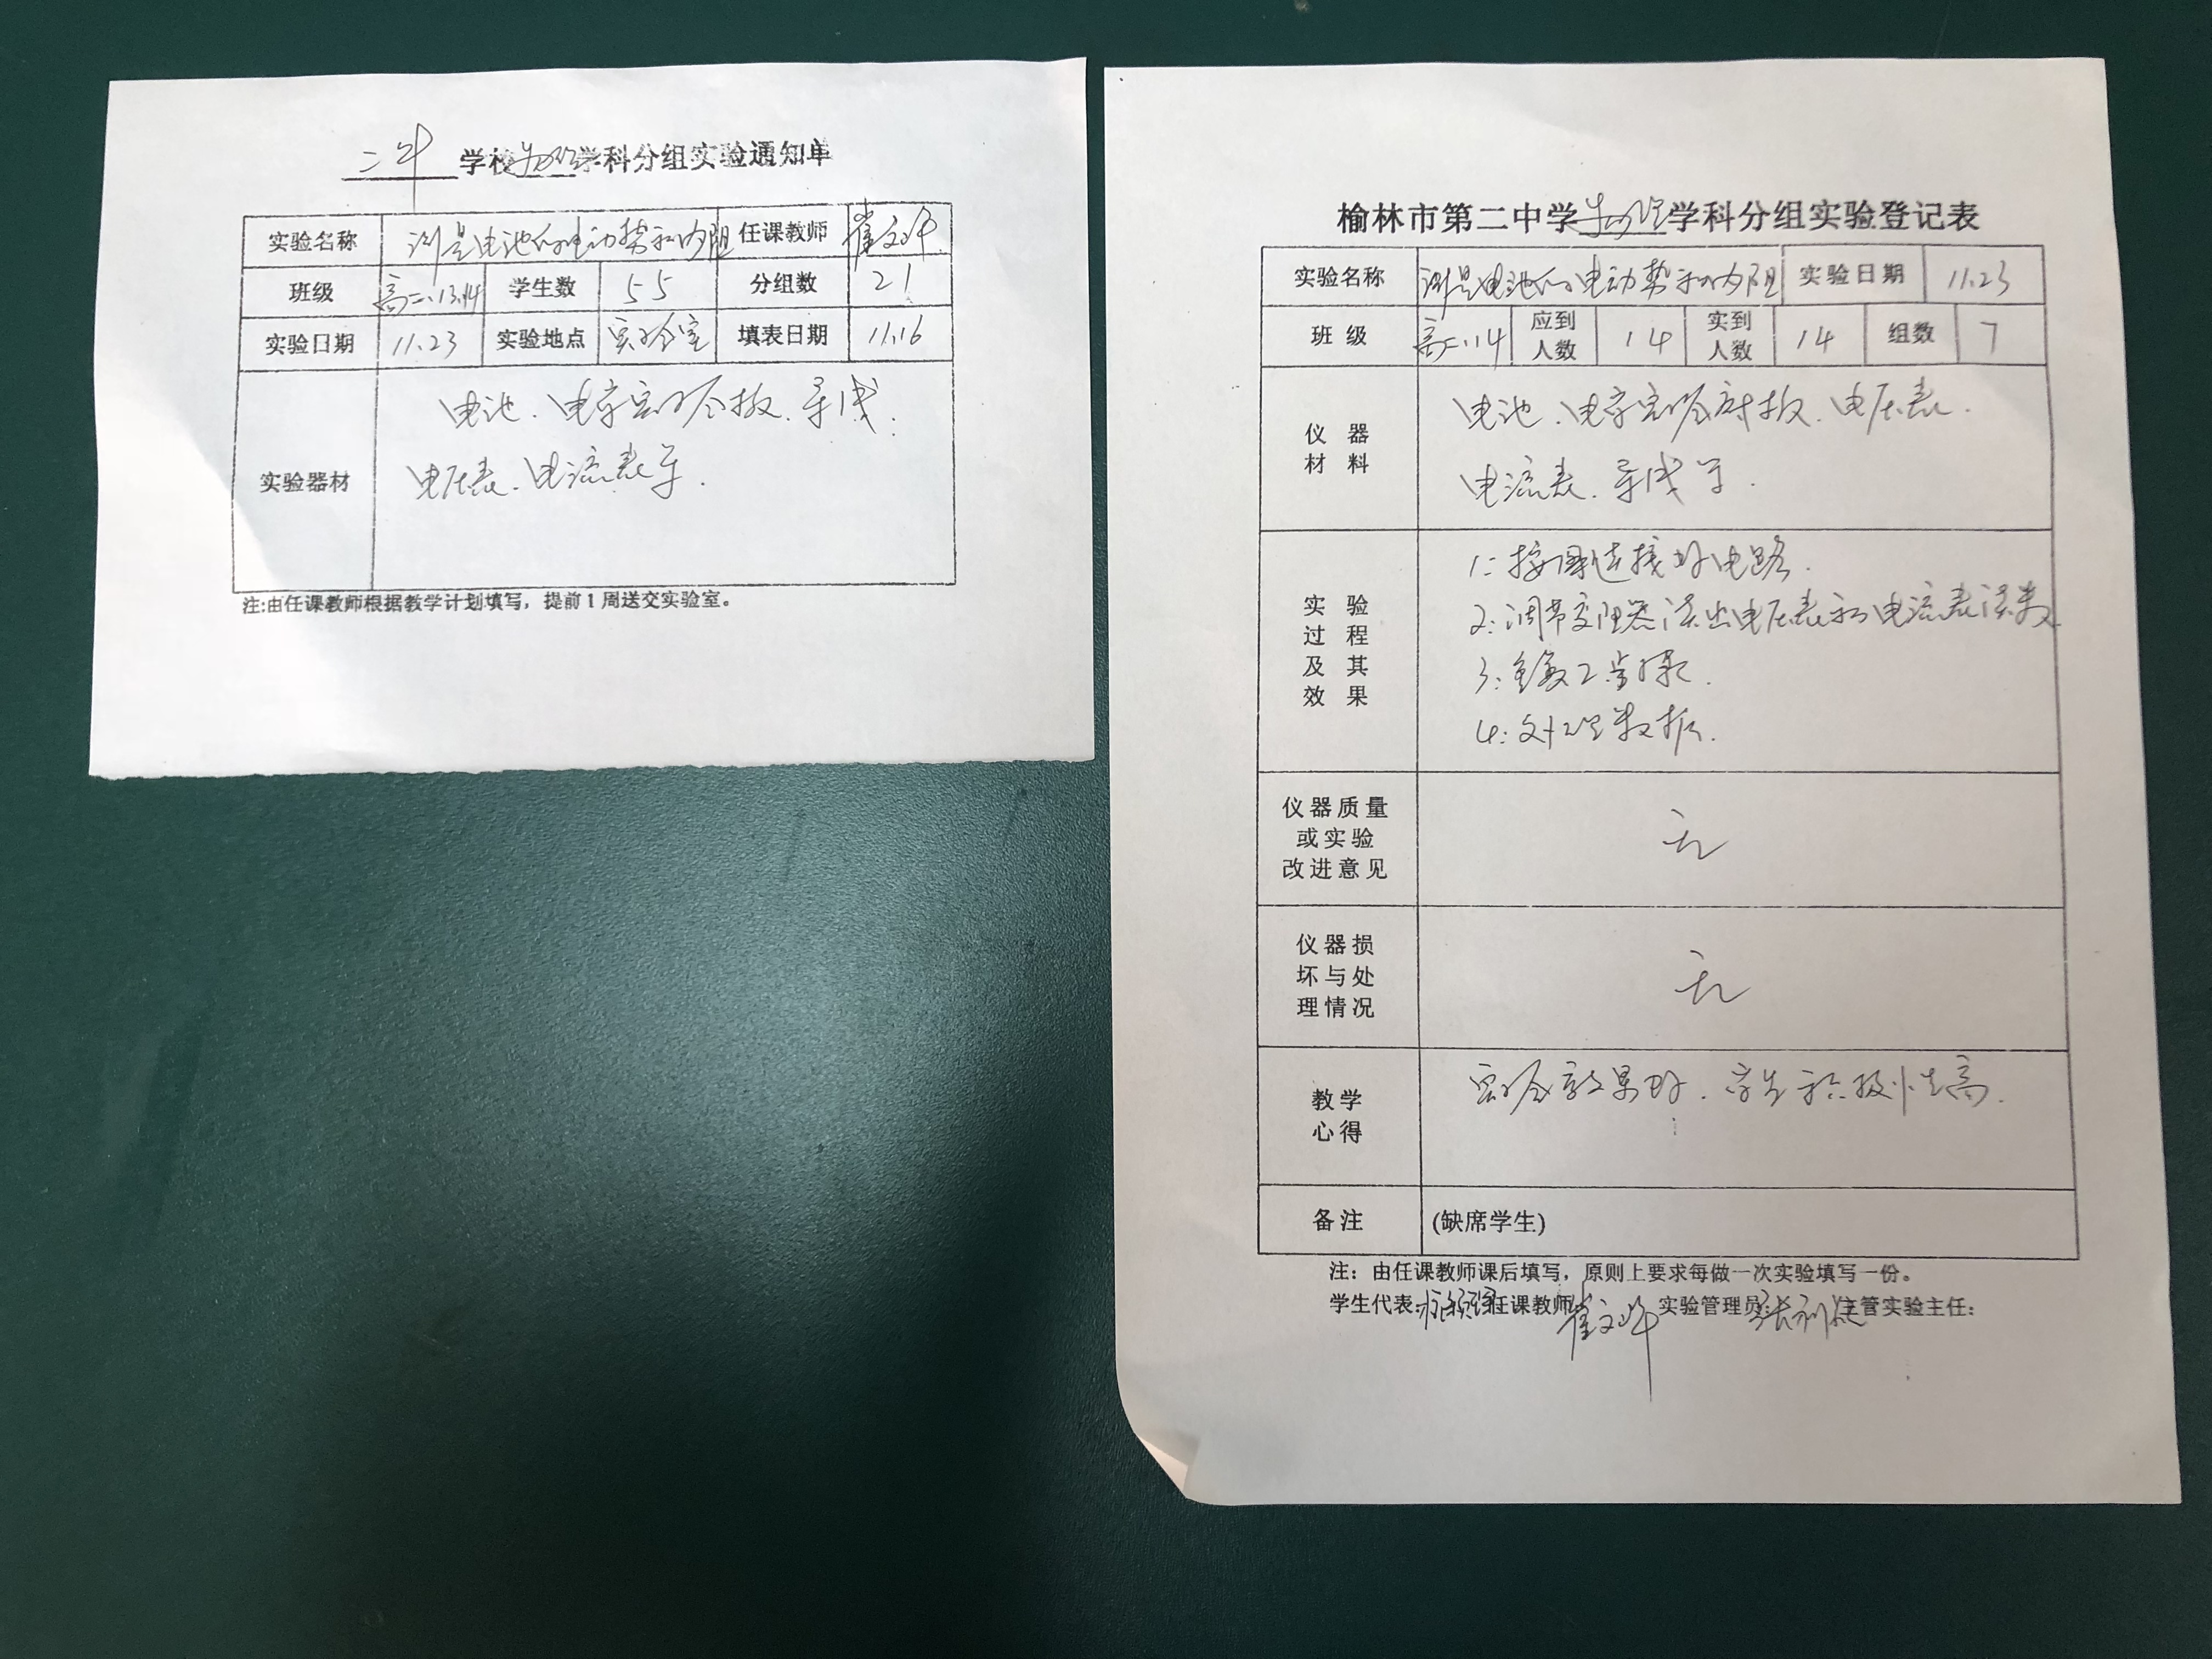 二中学校物理学科分组实验通知单
实验名称 测量电池的电动势和内阻 任课教师 崔文华
班级 高二.13.14 学生数 55 分组数 21
实验日期 11.23 实验地点 实验室 填表日期 11.16
实验器材 电池、电学实验板、导线、
电压表、电流表等.
注:由任课教师根据教学计划填写，提前1周送交实验室。
榆林市第二中学物理学科分组实验登记表
实验名称 测量电池的电动势和内阻 实验日期 11.23
班级 高二.14 应到人数 14 实到人数 14 组数 7
仪器材料 电池、电学实验底板、电压表.
电流表、导线等.
实验过程及其效果 1: 按图连接好电路.
2: 调节变阻器读出电压表和电流表读数
3: 重复2步骤.
4: 处理数据.
仪器质量或实验改进意见 无
仪器损坏与处理情况 无
教学心得 实验效果好.学生积极性高.
备注 (缺席学生)
注：由任课教师课后填写，原则上要求每做一次实验填写一份。
学生代表: 任课教师 崔文华 实验管理员: 主管实验主任: